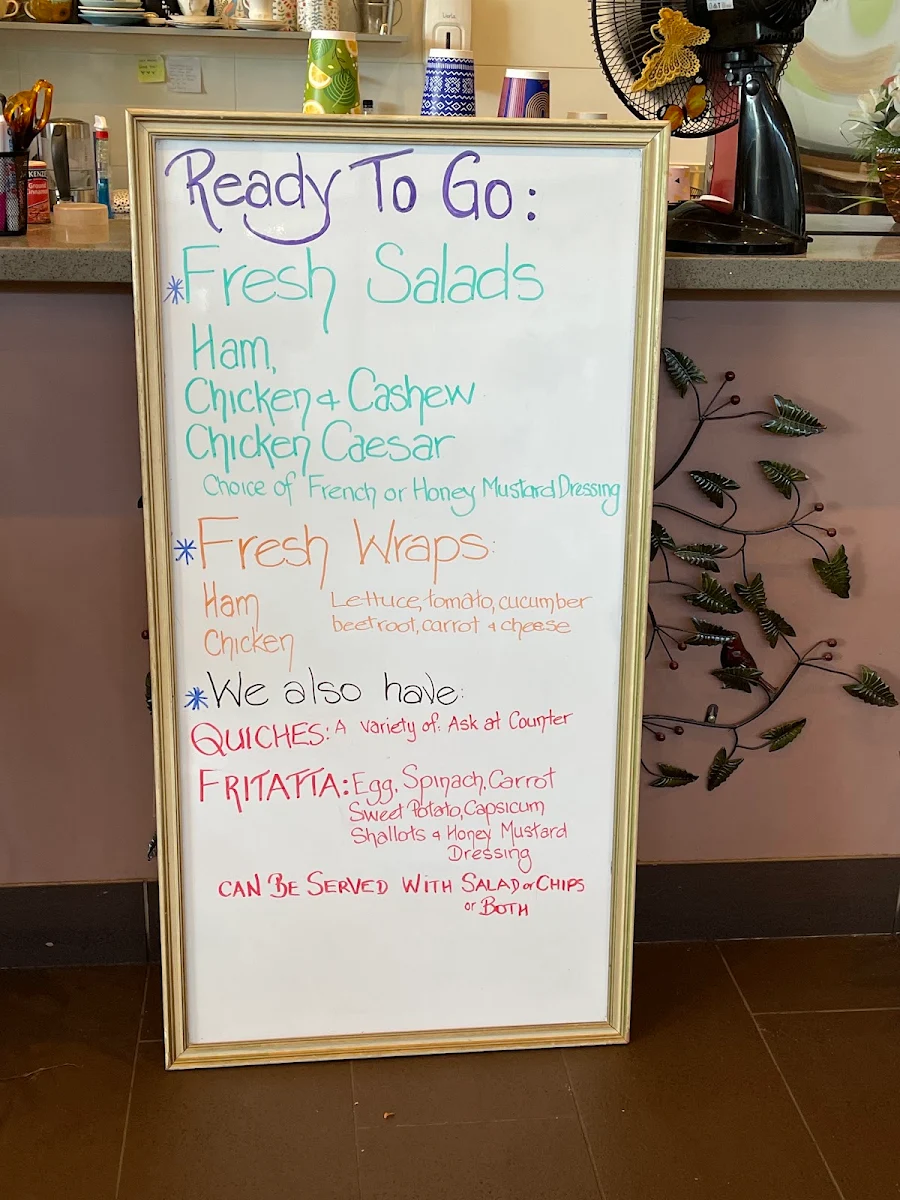 Ready To Go:
*Fresh Salads
Ham,
Chicken & Cashew
Chicken Caesar
Choice of French or Honey Mustard Dressing
*Fresh Wraps:
Ham
Chicken
Lettuce, tomato, cucumber
beetroot, carrot & cheese
*We also have:
QUICHES: A variety of: Ask at Counter
FRITATTA: Egg, Spinach, Carrot
Sweet Potato, Capsicum
Shallots & Honey Mustard
Dressing
CAN BE SERVED WITH SALAD or CHIPS
or BOTH